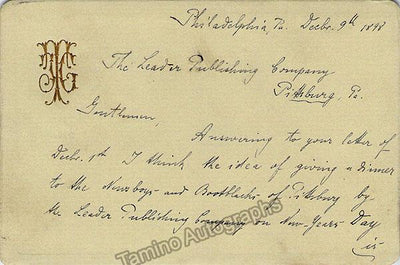 Philadelphia, Pa. Decbr. 9th 1898
The Leader Publishing Company
Pittsburg, Pa.
Gentlemen,
Answering to your letter of
Decbr. 1st I think the idea of giving a dinner
to the Newsboys and Bootblacks of Pittsburg by
the Leader Publishing Company on New-Years Day
is
Tamino Autographs